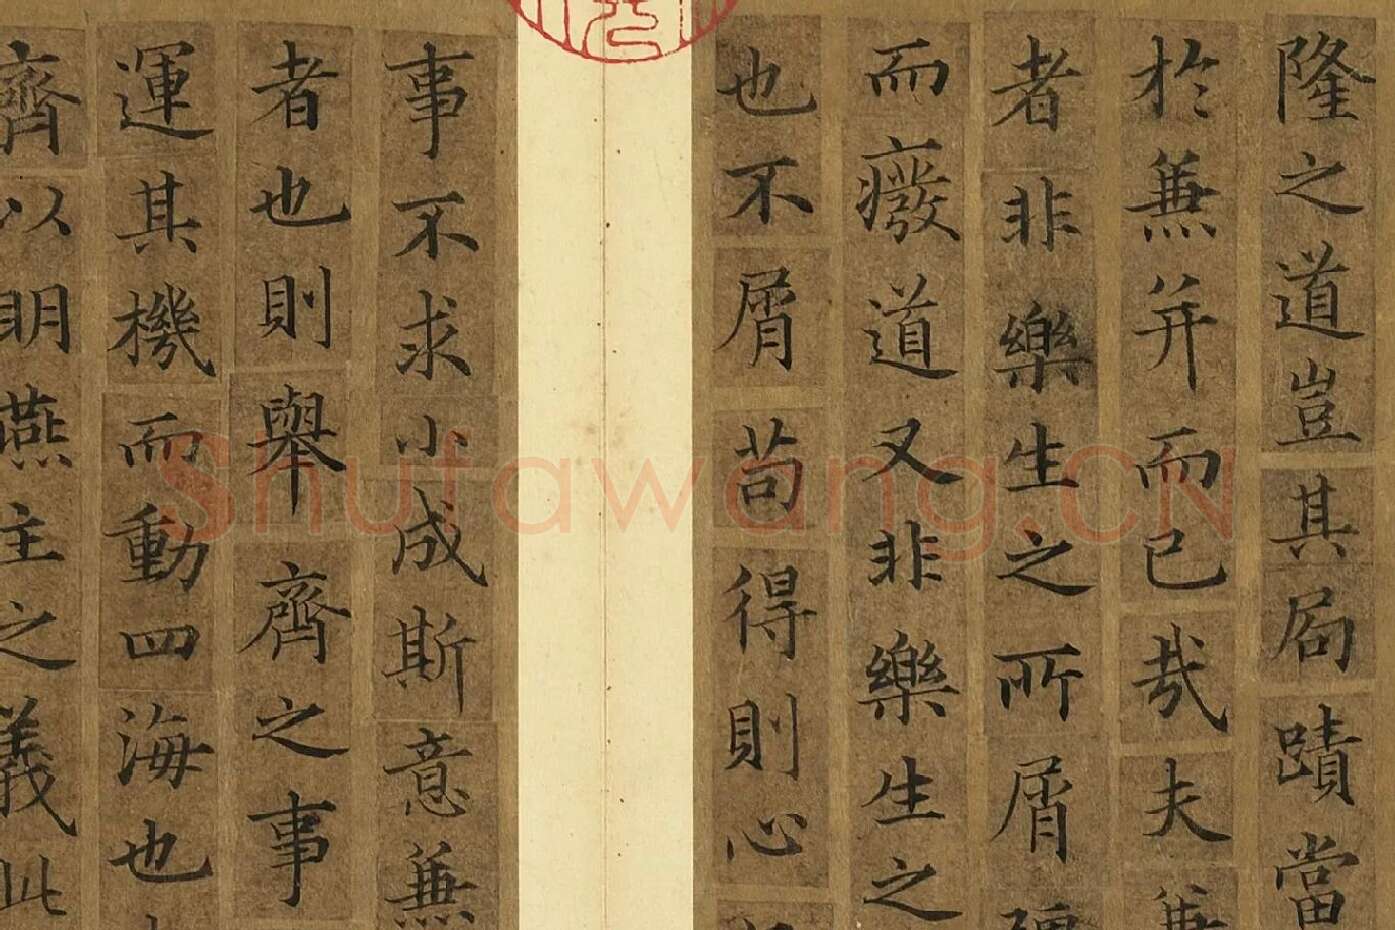 隆之道豈其局蹟當
於蒹并而已㢤夫蒹
者非樂生之所屑彊
而癈道又非樂生之
也不屑苟得則心
事不求小成斯意蒹
者也則舉齊之事
運其機而動四海也
齊以明燕主之義此
Shufawang.CN